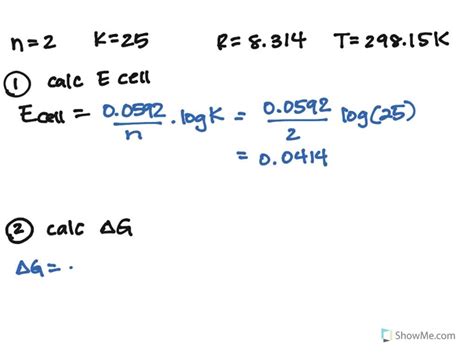 n=2 K=25 R=8.314 T=298.15K
① calc E cell
Ecell = 0.0592/n · log K = 0.0592/2 log(25)
= 0.0414
② calc ΔG
ΔG = -
ShowMe.com